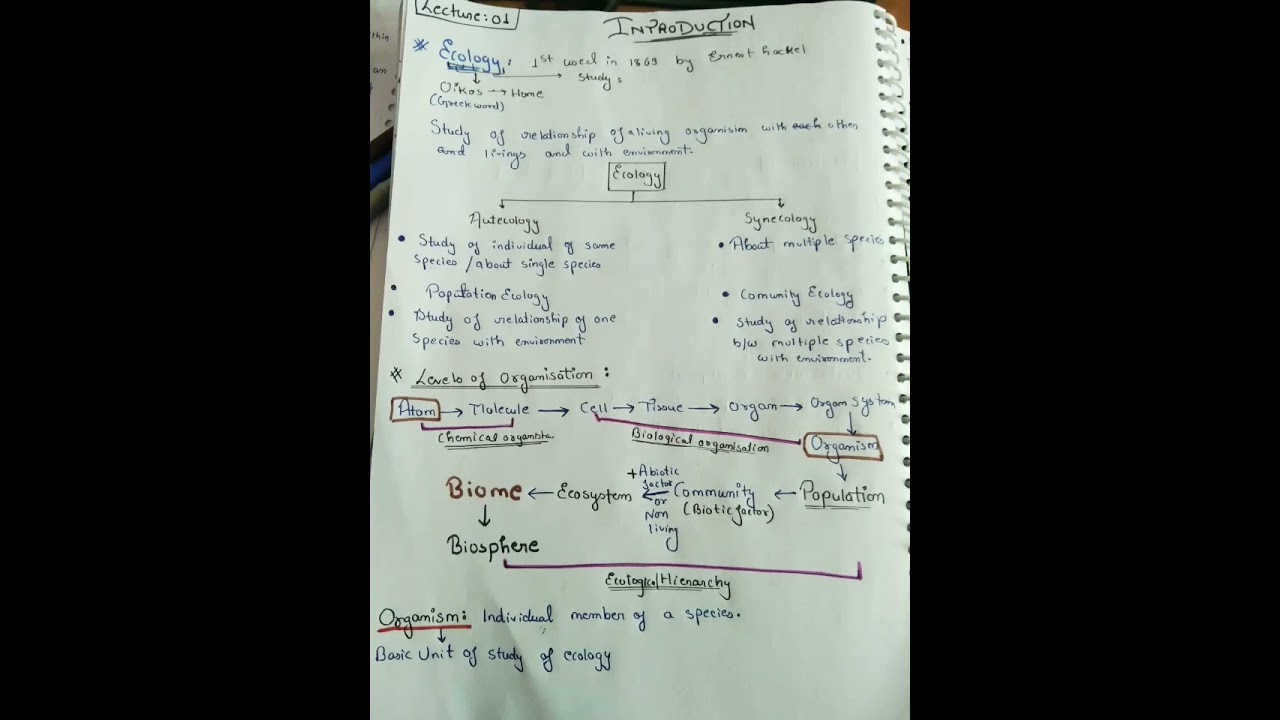 Lecture: 01
INTRODUCTION
thin
an
* Ecology: 1st used in 1869 by Ernest hackel
Study
Oikos → Home
(Greek word)
Study of relationship of a living organisim with each other
and livings and with environment.
Ecology
Autecology
Synecology
• Study of individual of same
species / about single species
• About multiple species
• Population Ecology
• Comunity Ecology
• Study of relationship of one
species with environment
• Study of relationship
b/w multiple species
with environment.
* Levels of Organisation :
Atom → Molecule → Cell → Tissue → Organ → Organ System
Chemical
Biological organisation
Organism
Biome ← Ecosystem ← Community ← Population
+ Abiotic
factor
or
Non
living
(Biotic factor)
Biosphere
Ecological Hierarchy
Organism: Individual member of a species.
Basic Unit of study of ecology